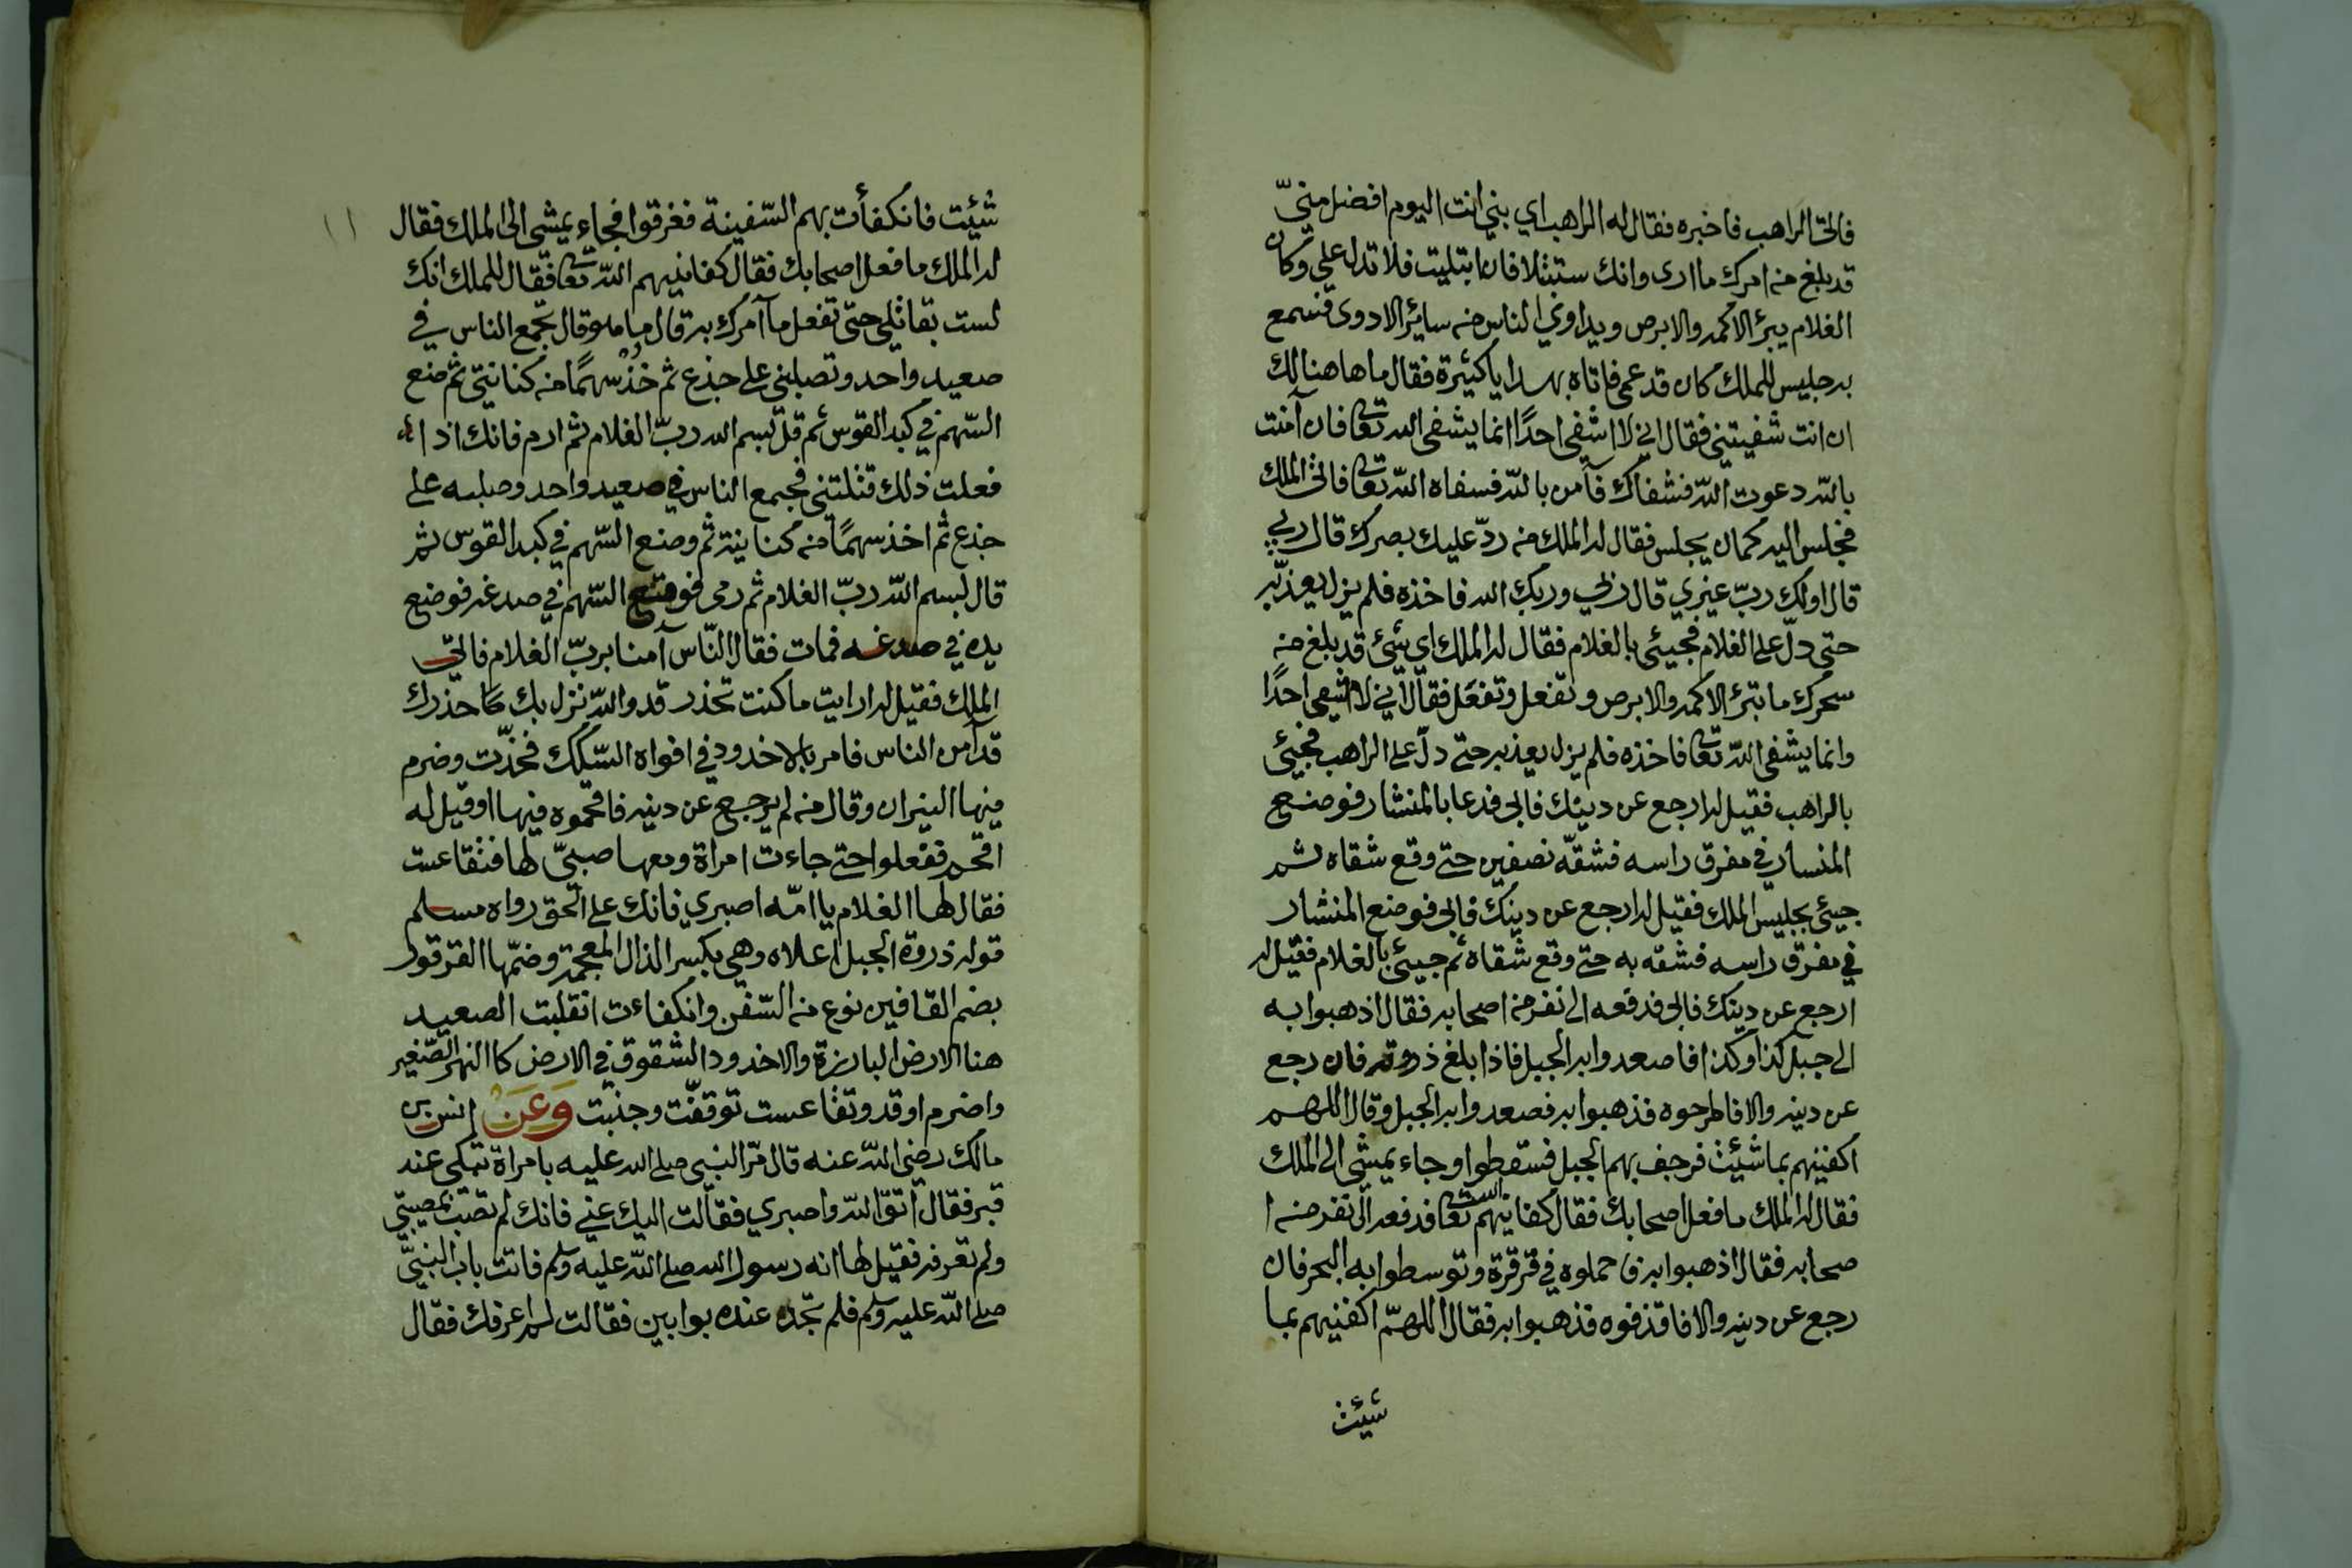 فاتى الراهب فاخبره فقال له الراهب اي بني انت اليوم افضل منيّ
قد بلغ من امرك ما ارى وانك ستبتلا فان ابتليت فلا تدل علي وكان
الغلام يبرئ الاكمه والابرص ويداوي الناس من سائر الادوى فسمع
به جليس للملك كان قد عمى فاتاه بهدايا كثيرة فقال ما هاهنا لك
ان انت شفيتني فقال اني لا اشفي احدًا انما يشفى الله تعا فان آمنت
بالله دعوت الله فشفاك فآمن بالله فسفاه الله تعا فاتى الملك
فجلس اليه كمان يجلس فقال له الملك من ردّ عليك بصرك قال ربي
قال اولك ربّ غيري قال ربي وربك الله فاخذه فلم يزل يعذبه
حتى دلّ على الغلام فجيئ بالغلام فقال له الملك اي بنيّ قد بلغ من
سحرك ما تبرئ الاكمه والابرص وتفعل وتفعل فقال اني لا اشفي احدًا
وانما يشفى الله تعا فاخذه فلم يزل يعذبه حتى دلّ على الراهب فجيئ
بالراهب فقيل له ارجع عن دينك فابى فدعا بالمنشار فوضع
المنسار في مفرق راسه فشقّه نصفين حتى وقع شقاه ثم
جيئ بجليس الملك فقيل له ارجع عن دينك فابى فوضع المنشار
في مفرق راسه فشقه به حتى وقع شقاه ثم جيئ بالغلام فقيل له
ارجع عن دينك فابى فدفعه الى نفر من اصحابه فقال اذهبوا به
الى جبل كذا وكذا فاصعدوا به الجبل فاذا بلغ ذروته فان رجع
عن دينه والا فاطرحوه فذهبوا به فصعدوا به الجبل وقال اللهم
اكفنيهم بما شئت فرجف بهم الجبل فسقطوا وجاء يمشي الى الملك
فقال له الملك ما فعل اصحابك فقال كفانيهم الله تعا فدفعه الى نفر من ا
صحابه فقال اذهبوا به فاحملوه في قرقرة وتوسطوا به البحر فان
رجع عن دينه والا فاقذفوه فذهبوا به فقال اللهمّ اكفنيهم بما
شيئت
١١
شيئت فانكفأت بهم السّفينة فغرقوا فجاء يمشى الى الملك فقال
له الملك ما فعل اصحابك فقال كفانيهم الله تعا فقال للملك انك
لست بقاتلي حتى تفعل ما آمرك به قال ما هو قال تجمع الناس في
صعيد واحد وتصلبني على جذع ثم خذ سهمًا من كنانتي ثم ضع
السّهم في كبد القوس ثم قل بسم الله ربّ الغلام ثم ارم فانك اذا
فعلت ذلك قتلتني فجمع الناس في صعيد واحد وصلبه على
جذع ثم اخذ سهمًا من كنانته ثم وضع السّهم في كبد القوس ثم
قال لبسم الله ربّ الغلام ثم رمى فوقع السّهم في صدغه فوضع
يده في صدغه فمات فقال النّاس آمنا بربّ الغلام فاتى
الملك فقيل له ارايت ما كنت تحذر قد والله نزل بك ما حذرك
قد آمن الناس فامر بالاخدود في افواه السّكك فخدّت وضرم
فيها النيران وقال من لم يرجع عن دينه فاقحموه فيها او قيل له
اقحم ففعلوا حتى جاءت امراة ومعها صبيّ لها فتقاعست
فقال لها الغلام يا امّه اصبري فانك على الحق رواه مسلم
قوله ذروة الجبل اعلاه وهي بكسر الذال المعجمة وضمّها القرقور
بضم القافين نوع من السّفن وانكفاءت انقلبت الصعيد
هنا الارض البارزة والاخدود الشقوق في الارض كا النهر الصّغير
واضرم اوقد وتقاعست توقفّت وجنبت وَعَنْ انس بن
مالك رضي الله عنه قال مرّ النبي صلى الله عليه بامراة تبكي عند
قبر فقال اتقوّ الله واصبري فقالت اليك عني فانك لم تصب بمصيبتي
ولم تعرفه فقيل لها انه رسول الله صلى الله عليه وسلم فاتت باب النبيّ
صلى الله عليه وسلم فلم تجده عنده بوابين فقالت لم اعرفك فقال